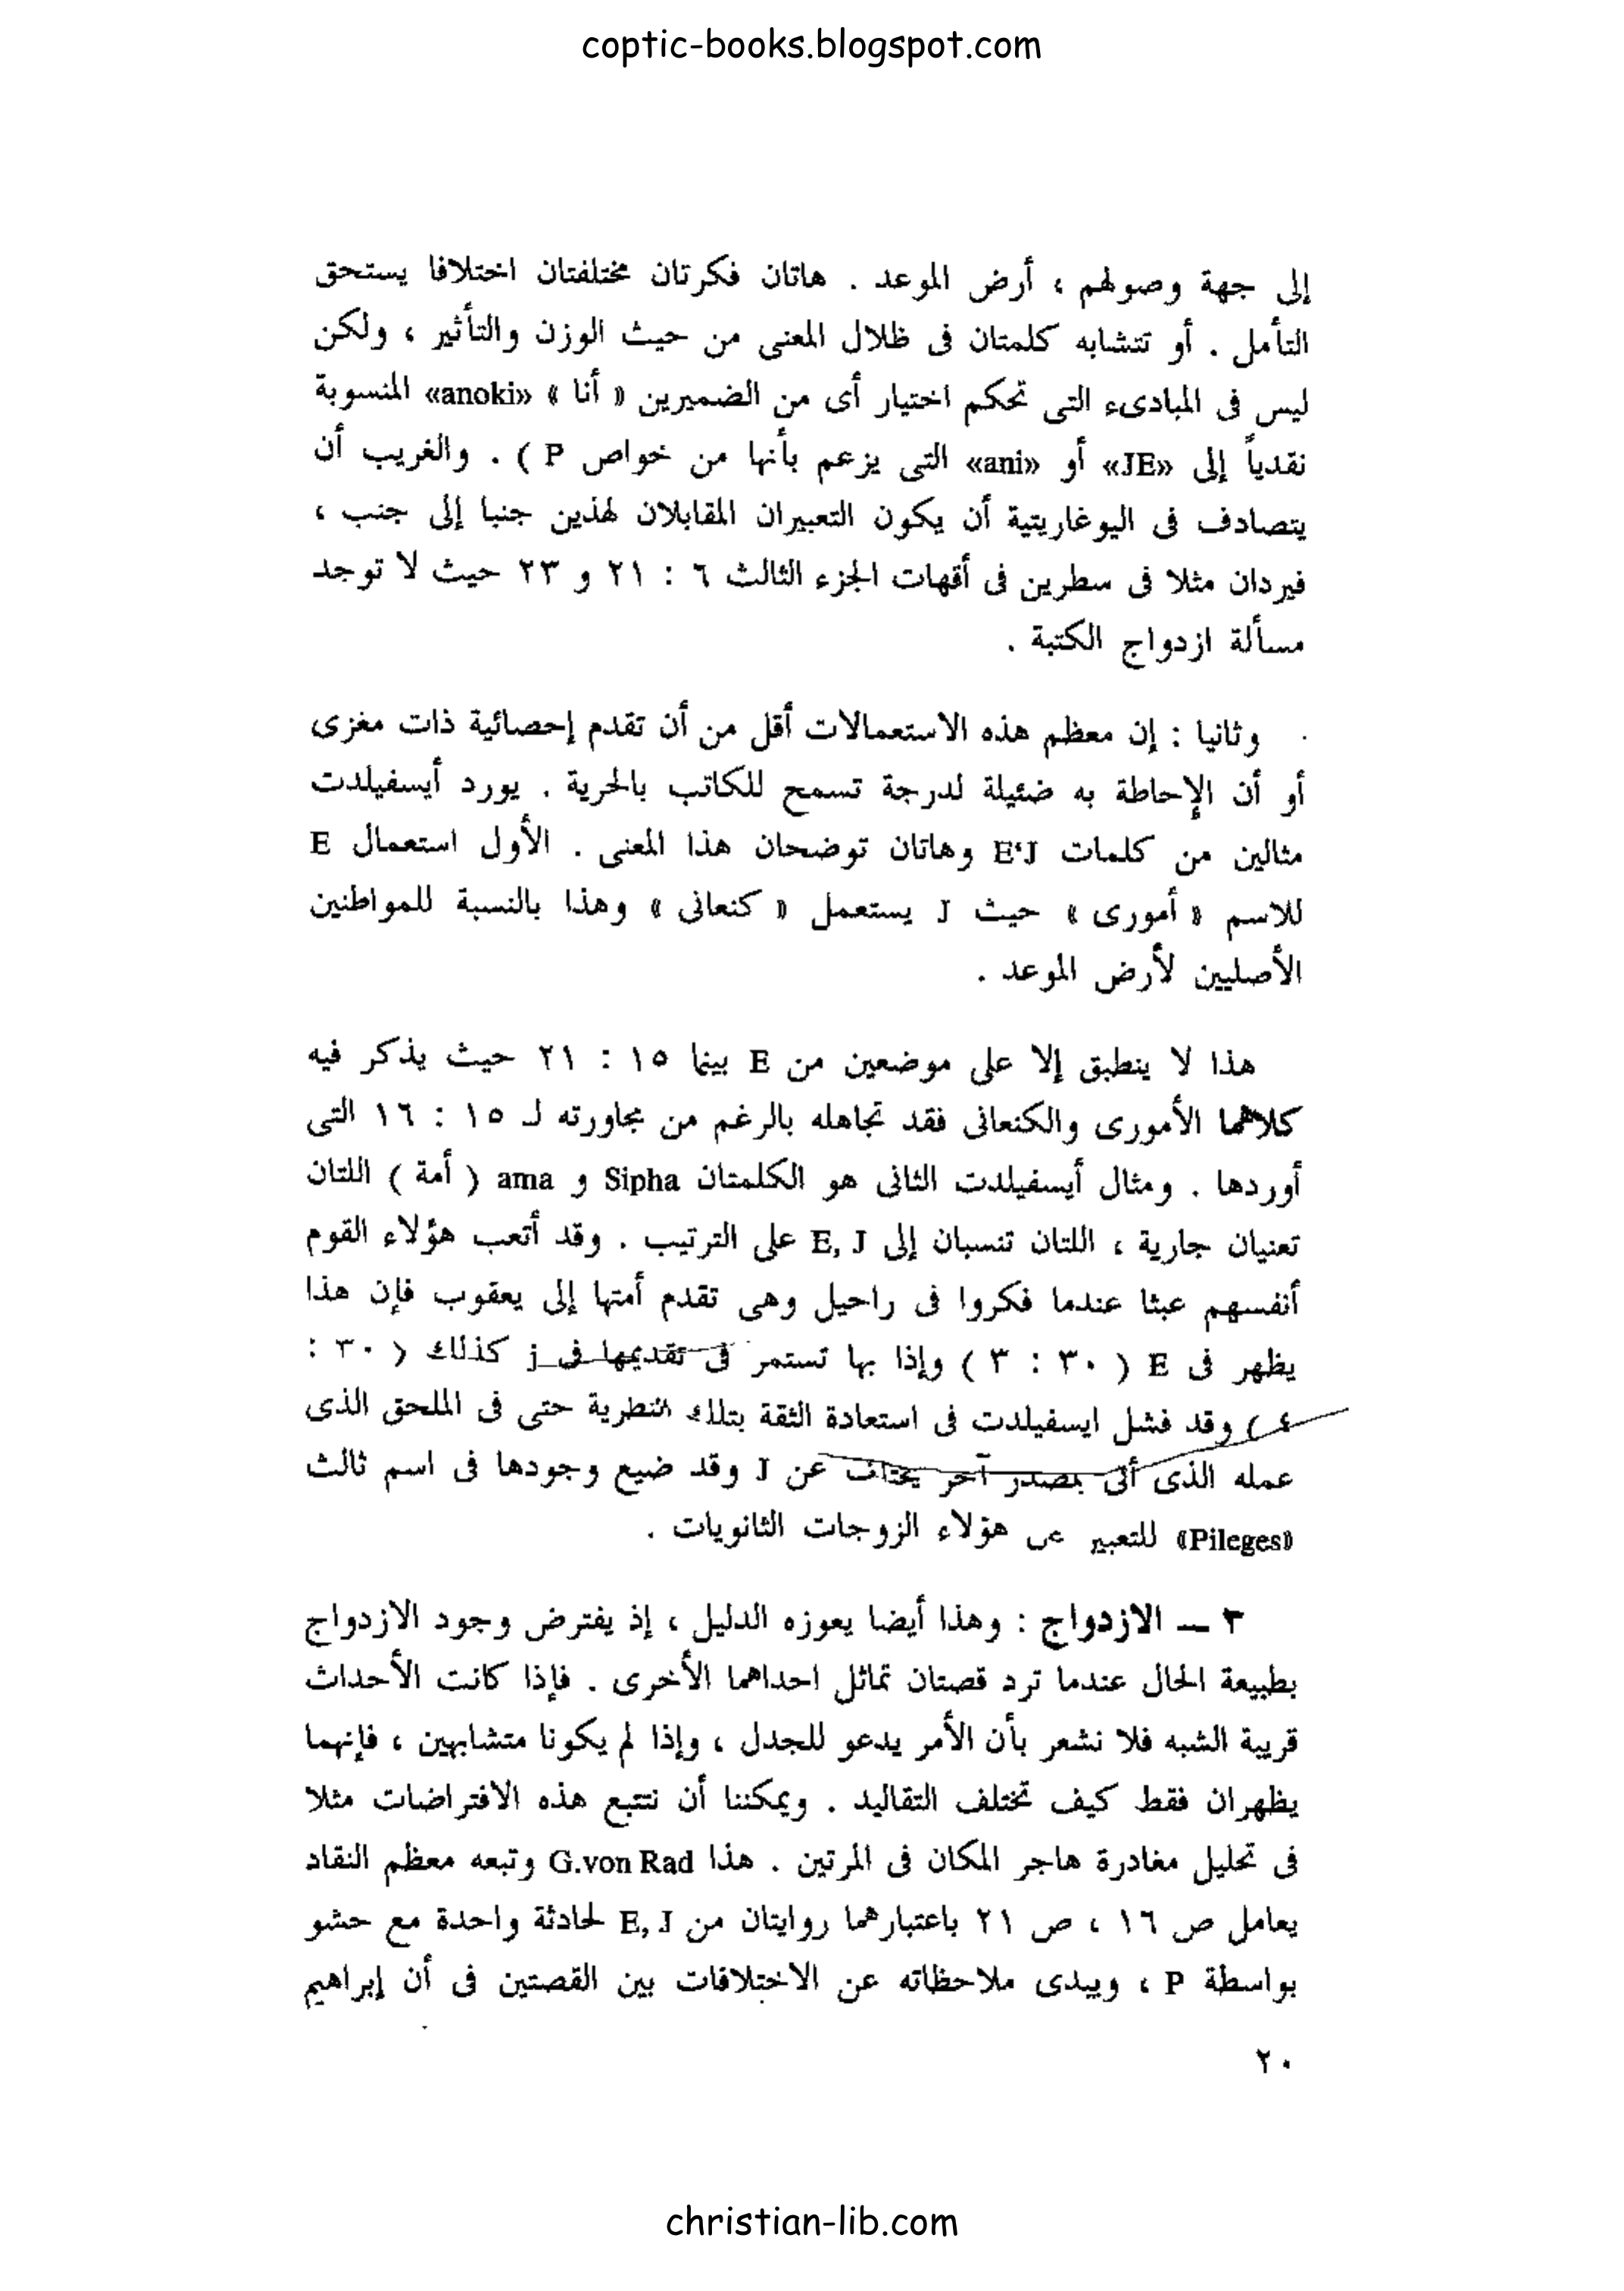 coptic-books.blogspot.com
إلى جهة وصولهم ، أرض الموعد . هاتان فكرتان مختلفتان اختلافا يستحق
التأمل . أو تتشابه كلمتان فى ظلال المعنى من حيث الوزن والتأثير ، ولكن
ليس فى المبادىء التى تحكم اختيار أى من الضميرين « أنا » «anoki» المنسوبة
نقدياً إلى «JE» أو «ani» التى يزعم بأنها من خواص P ) . والغريب أن
يتصادف فى اليوغاريتية أن يكون التعبيران المقابلان لهذين جنبا إلى جنب ،
فيردان مثلا فى سطرين فى أقهات الجزء الثالث ٦ : ٢١ و ٢٣ حيث لا توجد
مسألة ازدواج الكتبة .
وثانيا : إن معظم هذه الاستعمالات أقل من أن تقدم إحصائية ذات مغزى
أو أن الإحاطة به ضئيلة لدرجة تسمح للكاتب بالحرية . يورد أيسفيلدت
مثالين من كلمات E،J وهاتان توضحان هذا المعنى . الأول استعمال E
للاسم « أمورى » حيث J يستعمل « كنعانى » وهذا بالنسبة للمواطنين
الأصليين لأرض الموعد .
هذا لا ينطبق إلا على موضعين من E بينما ١٥ : ٢١ حيث يذكر فيه
كلاهما الأمورى والكنعانى فقد تجاهله بالرغم من مجاورته لـ ١٥ : ١٦ التى
أوردها . ومثال أيسفيلدت الثانى هو الكلمتان Sipha و ama ( أمة ) اللتان
تعنيان جارية ، اللتان تنسبان إلى E, J على الترتيب . وقد أتعب هؤلاء القوم
أنفسهم عبثا عندما فكروا فى راحيل وهى تقدم أمتها إلى يعقوب فإن هذا
يظهر فى E ( ٣٠ : ٣ ) وإذا بها تستمر فى تقديمها فى j كذلك ( ٣٠ :
٤ ) وقد فشل ايسفيلدت فى استعادة الثقة بتلك النظرية حتى فى الملحق الذى
عمله الذى أتى بمصدر آخر يختلف عن J وقد ضيع وجودها فى اسم ثالث
«Pileges» للتعبير عن هؤلاء الزوجات الثانويات .
٣ — الازدواج : وهذا أيضا يعوزه الدليل ، إذ يفترض وجود الازدواج
بطبيعة الحال عندما ترد قصتان تماثل احداهما الأخرى . فإذا كانت الأحداث
قريبة الشبه فلا نشعر بأن الأمر يدعو للجدل ، وإذا لم يكونا متشابهين ، فإنهما
يظهران فقط كيف تختلف التقاليد . ويمكننا أن نتتبع هذه الافتراضات مثلا
فى تحليل مغادرة هاجر المكان فى المرتين . هذا G.von Rad وتبعه معظم النقاد
يعامل ص ١٦ ، ص ٢١ باعتبارهما روايتان من E, J لحادثة واحدة مع حشو
بواسطة P ، ويبدى ملاحظاته عن الاختلافات بين القصتين فى أن إبراهيم
٢٠
christian-lib.com